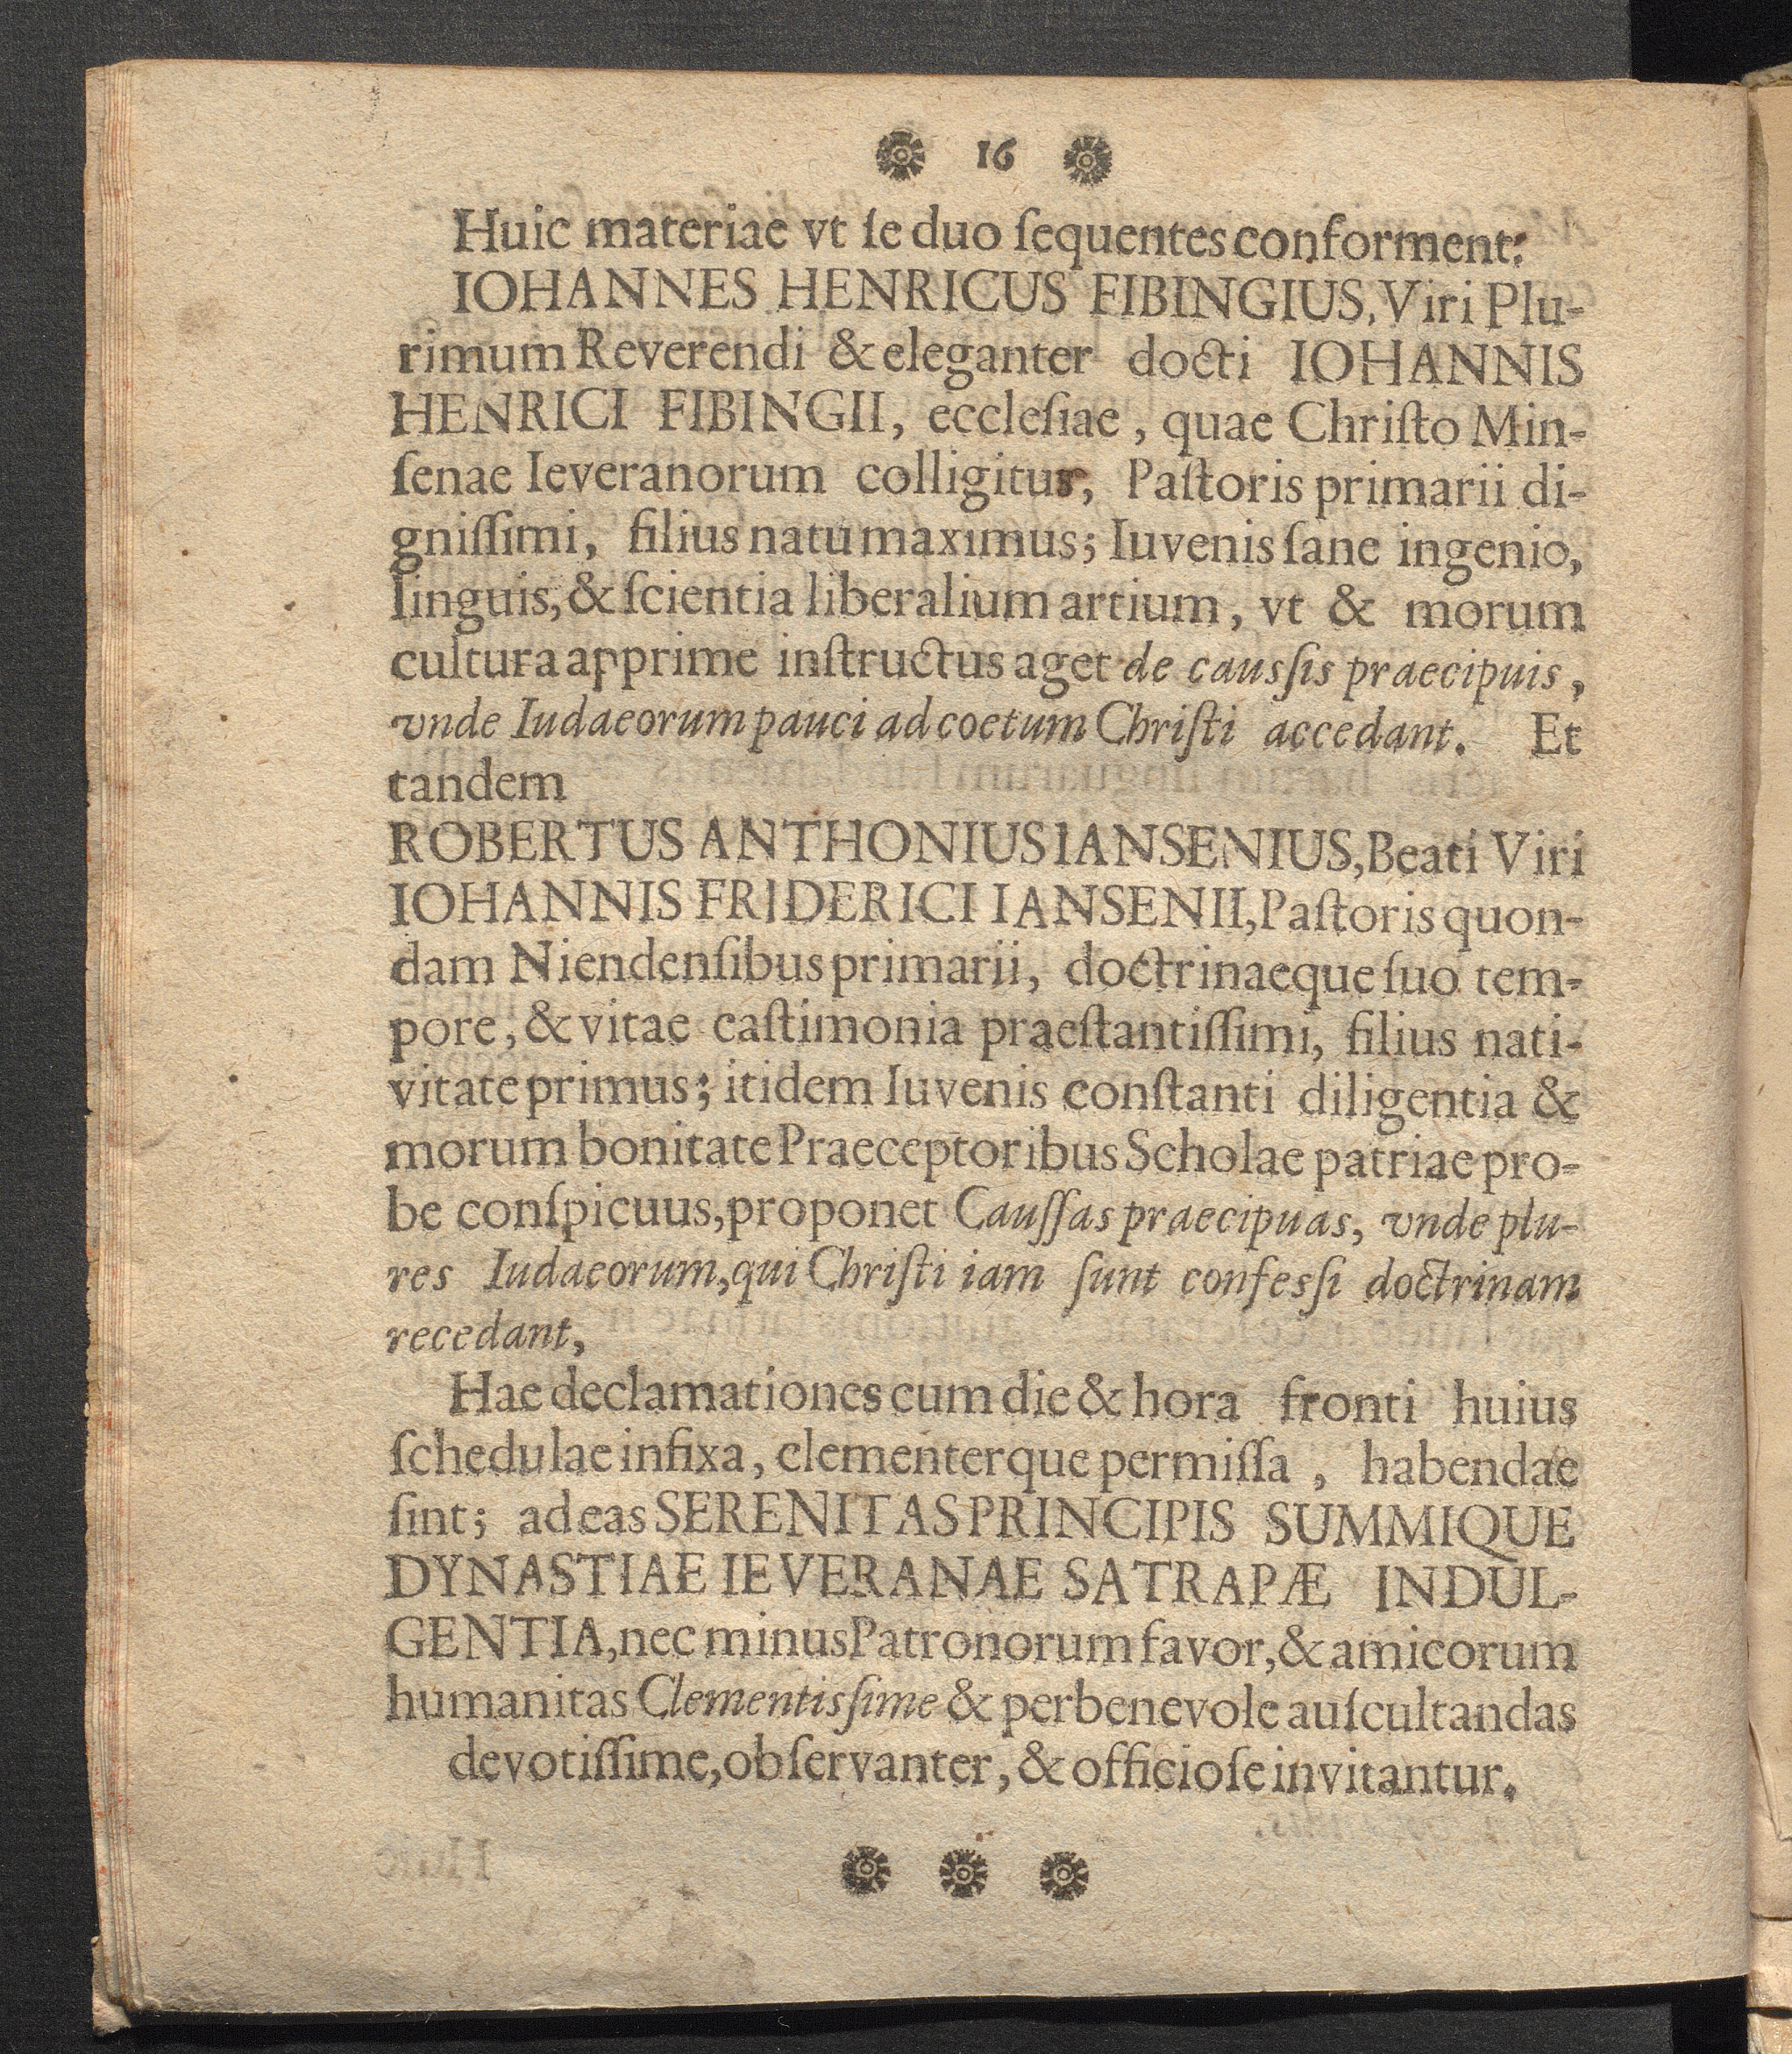 16
Huic materiae vt ſe duo ſequentes conforment:
IOHANNES HENRICUS FIBINGIUS, Viri Plu-
rimum Reverendi & eleganter docti IOHANNIS
HENRICI FIBINGII, eccleſiae, quae Chriſto Min-
ſenae Ieveranorum colligitur, Paſtoris primarii di-
gniſſimi, filius natu maximus; Iuvenis ſane ingenio,
linguis, & ſcientia liberalium artium, vt & morum
cultura apprime inſtructus aget de causſis praecipuis,
vnde Iudaeorum pauci ad coetum Chriſti accedant. Et
tandem
ROBERTUS ANTHONIUS IANSENIUS, Beati Viri
IOHANNIS FRIDERICI IANSENII, Paſtoris quon-
dam Niendenſibus primarii, doctrinaeque ſuo tem-
pore, & vitae caſtimonia praeſtantiſſimi, filius nati-
vitate primus; itidem Iuvenis conſtanti diligentia &
morum bonitate Praeceptoribus Scholae patriae pro-
be conſpicuus, proponet Cauſſas praecipuas, vnde plu-
res Iudaeorum, qui Chriſti iam ſunt confesſi doctrinam
recedant,
Hae declamationes cum die & hora fronti huius
ſchedulae infixa, clementerque permiſſa, habendae
ſint; ad eas SERENITAS PRINCIPIS SUMMIQUE
DYNASTIAE IEVERANAE SATRAPÆ INDUL-
GENTIA, nec minus Patronorum favor, & amicorum
humanitas Clementisſime & perbenevole auſcultandas
devotiſſime, obſervanter, & officioſe invitantur.